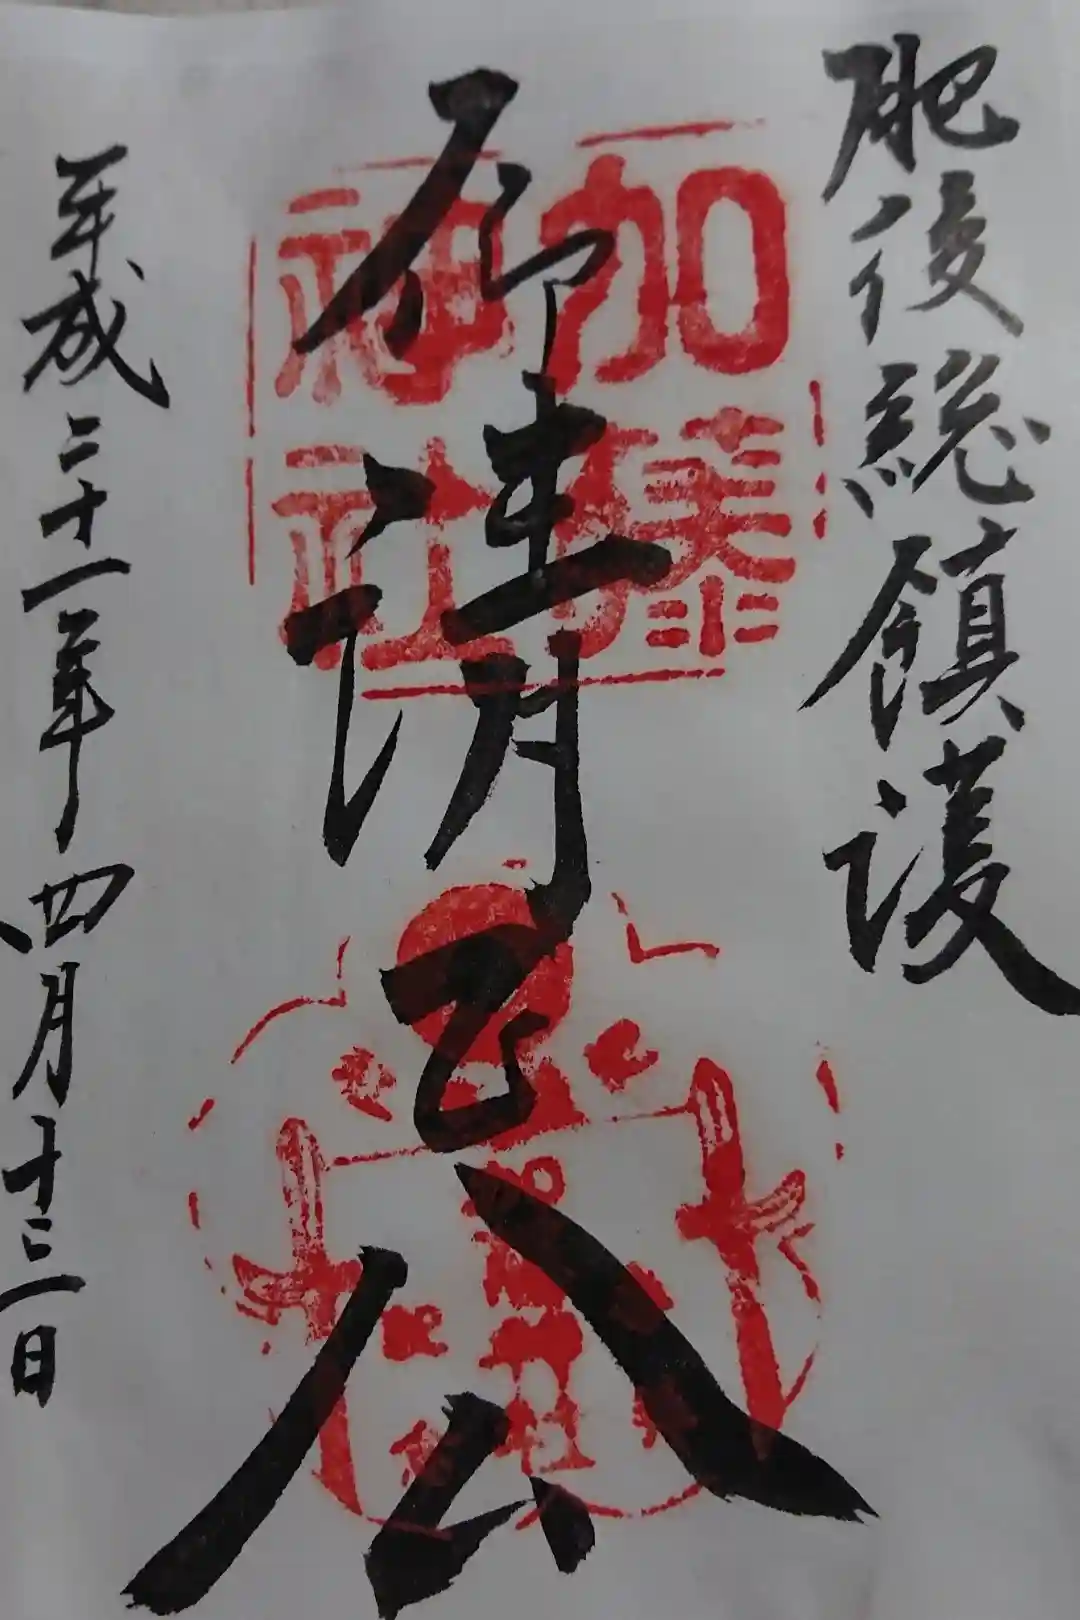 肥後総鎮護
仰清正公
加藤
神社
平成二十一年四月十三日